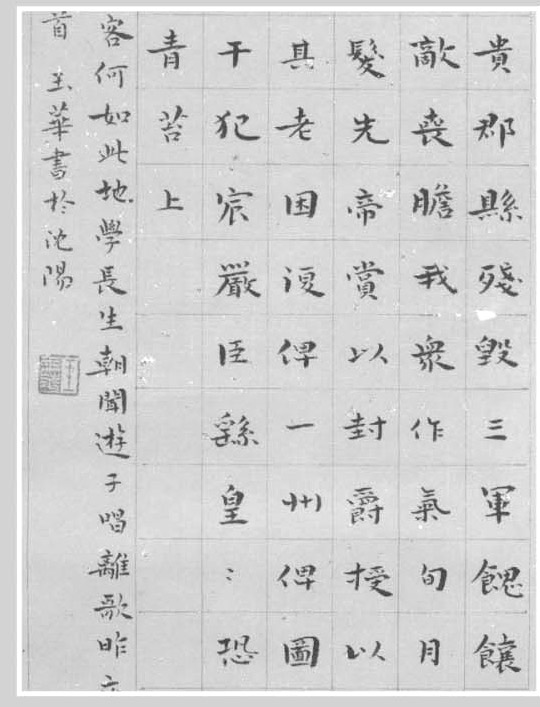 貴郡縣殘毀三軍餽饟
敵喪膽我衆作氣旬月
髮先帝賞以封爵授以
具老困復俾一州俾圖
干犯宸嚴臣繇皇〻恐
青苔上
容何如此地學長生朝聞遊子唱離歌昨
首 華書於沈陽